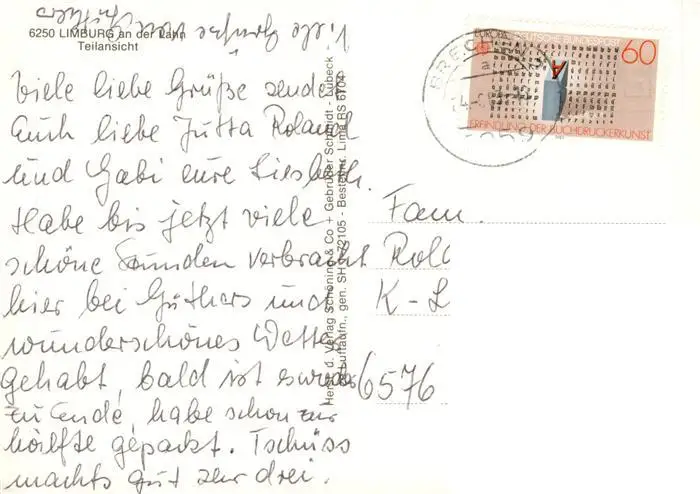 6250 LIMBURG an der Lahn
Teilansicht
Viele liebe Grüße sendet
Euch liebe Jutta Roland
und Gabi eure Liesbeth.
Habe bis jetzt viele
schöne Stunden verbracht
hier bei Güthers und
wunderschönes Wetter
gehabt, bald ist es wieder
zu Ende, habe schon zur
hälfte gepackt. Tschüss
machts gut ihr drei.
viele Grüße von Güthers
Herst. u. Verlag Schöning & Co + Gebrüder Schmidt - Lübeck
Luftaufn., gen. SH 22105 - Bestellnr. Lima RS 6704
EUROPA DEUTSCHE BUNDESPOST
60
A
ERFINDUNG DER BUCHDRUCKERKUNST
BRECHEN
a
Fam.
Rol
K-L
6576